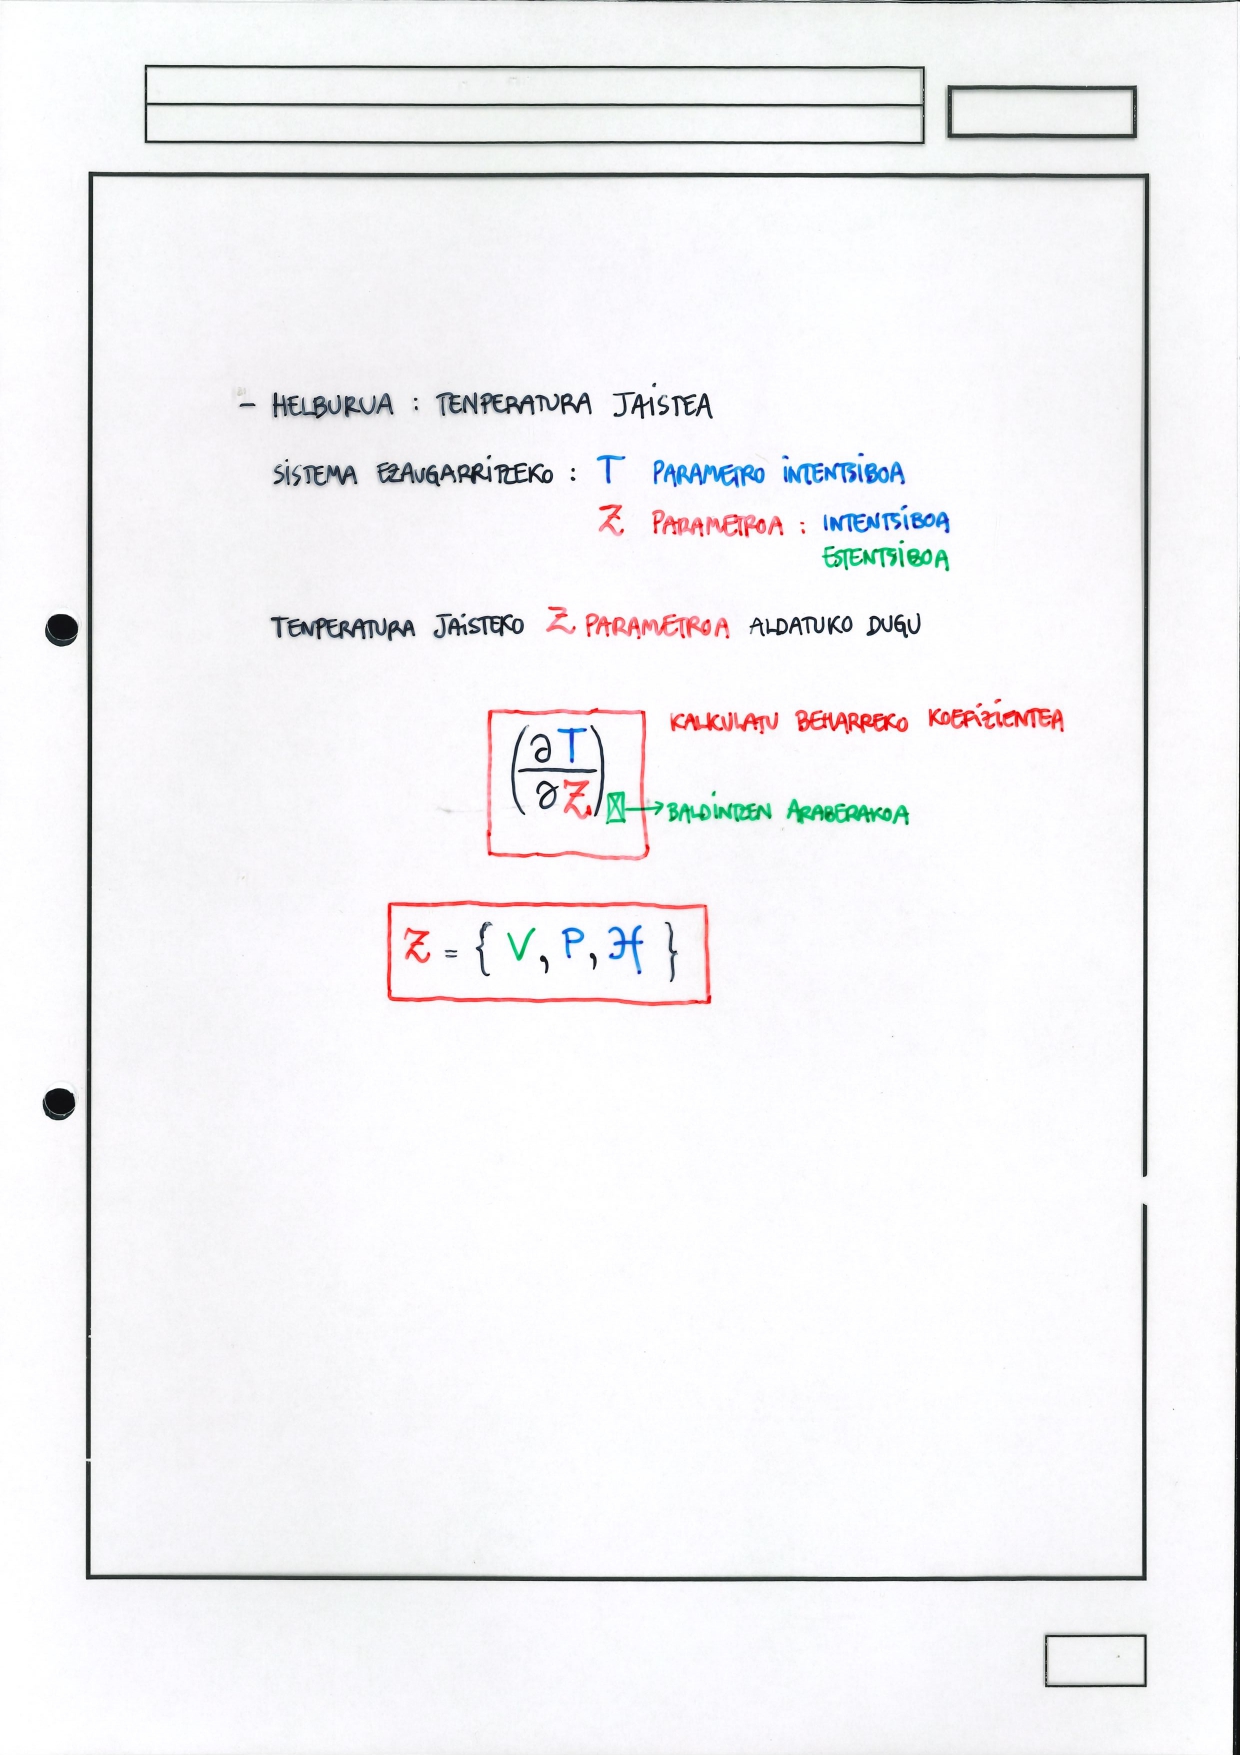 - HELBURUA : TENPERATURA JAISTEA
SISTEMA EZAUGARRITZEKO : T PARAMETRO INTENTSIBOA
Z PARAMETROA : INTENTSIBOA
ESTENTSIBOA
TENPERATURA JAISTEKO Z PARAMETROA ALDATUKO DUGU
KALKULATU BEHARREKO KOEFIZIENTEA
(∂T/∂Z)☒ → BALDINTZEN ARABERAKOA
Z = { V, P, ℋ }